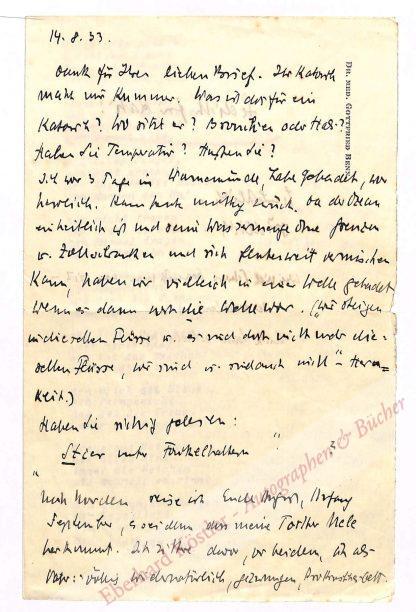 14. 8. 33.
DR. MED. GOTTFRIED BENN
Dank für Ihren lieben Brief. Ihr Katarrh
macht mir Kummer. Was ist das für ein
Katarrh? Wo sitzt er? Bronchien oder Hals?
Haben Sie Temperatur? Husten Sie?
Ich war 3 Tage in Warnemünde, habe gebadet, war
herrlich. Kam heute mittag zurück. Da der Ozean
einheitlich ist und seine Wassermenge ohne Grenzen
u. Zollschranken und sich vermischen
kann, haben wir vielleicht in einer Welle gebadet
wenn es dann noch die Welle war. (" wir steigen
in dieselben Flüsse u. es sind doch nicht mehr die-
selben Flüsse, wir sind u. sind auch nicht" – Hera-
klit.)
Haben Sie richtig gelesen:
" Stier unter Fackelhaltern " ?
Nach Norden reise ich Ende August, Anfang
September, es sei denn dass meine Tochter Nele
herkommt. Ich zittre davor, vor beidem, als
Vater: völlig widernatürlich, gezwungen, Prokrustes-Bett.
Eberhard Köstler - Autographen & Bücher